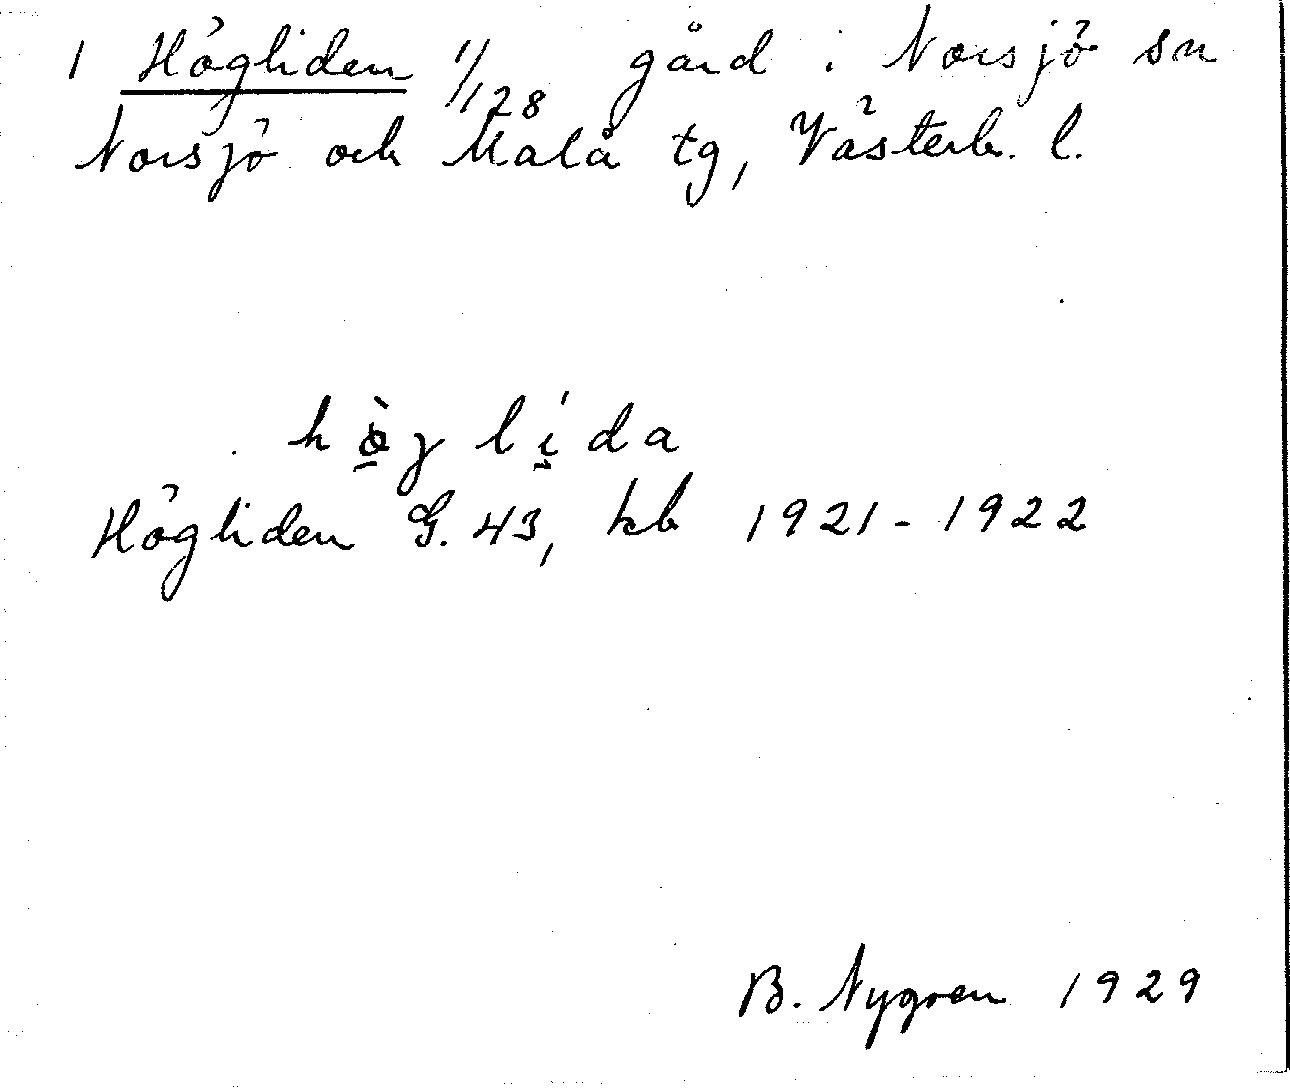 1 Högliden 1/128 gård i Norsjö sn
Norsjö och Malå tg, Västerb. l.
hø̀g lí̱da
Högliden G. 43, kb 1921-1922
B. Nygren 1929